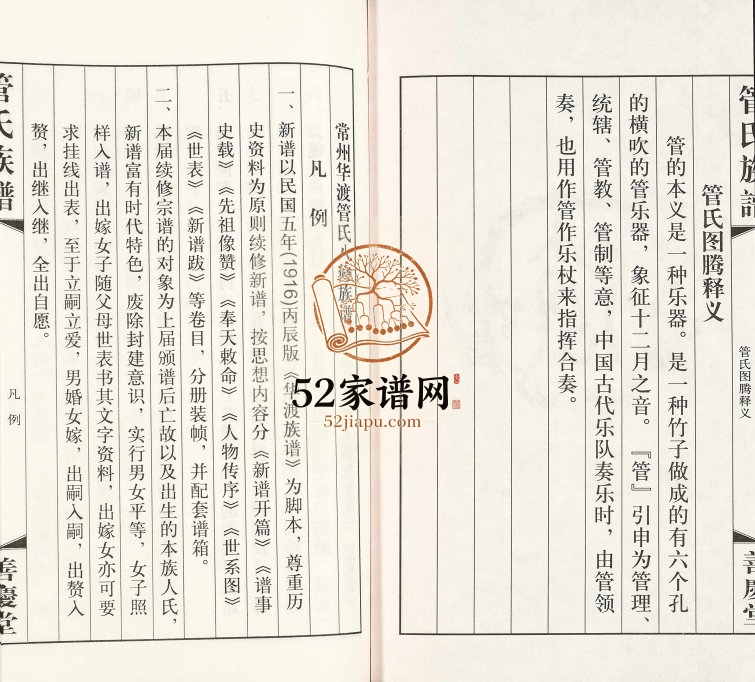 管氏族譜
管氏图腾释义
善慶堂
管氏图腾释义
管的本义是一种乐器。是一种竹子做成的有六个孔
的横吹的管乐器，象征十二月之音。『管』引申为管理、
统辖、管教、管制等意，中国古代乐队奏乐时，由管领
奏，也用作管作乐杖来指挥合奏。
常州华渡管氏
族谱
凡例
一、新谱以民国五年(1916)丙辰版《华渡族谱》为脚本，尊重历
史资料为原则续修新谱，按思想内容分《新谱开篇》《谱事
史载》《先祖像赞》《奉天敕命》《人物传序》《世系图》
《世表》《新谱跋》等卷目，分册装帧，并配套谱箱。
二、本届续修宗谱的对象为上届颁谱后亡故以及出生的本族人氏，
新谱富有时代特色，废除封建意识，实行男女平等，女子照
样入谱，出嫁女子随父母世表书其文字资料，出嫁女亦可要
求挂线出表，至于立嗣立爱，男婚女嫁，出嗣入嗣，出赘入
赘，出继入继，全出自愿。
管氏族譜
凡例
善慶堂
52家谱网
52jiapu.com